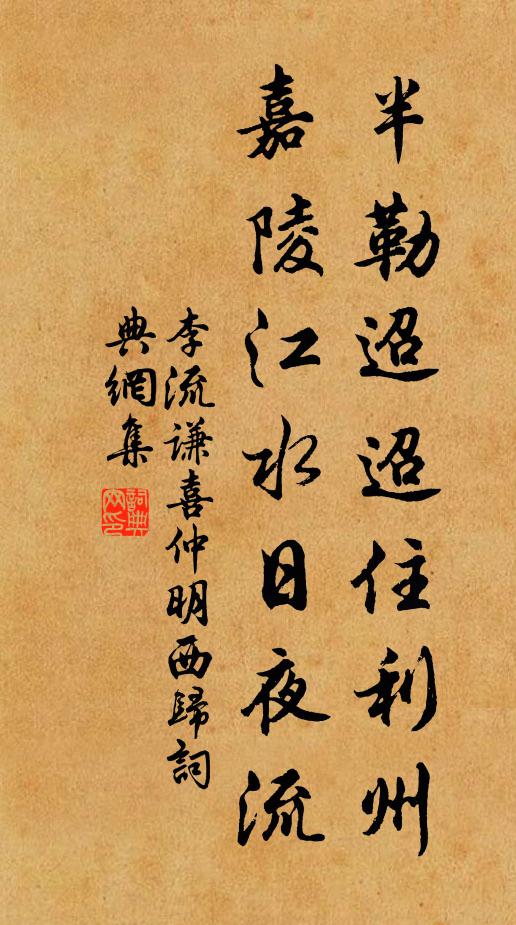 半勒迢迢住利州
嘉陵江水日夜流
李流谦喜仲明西歸詞
典網集
詞典
网印